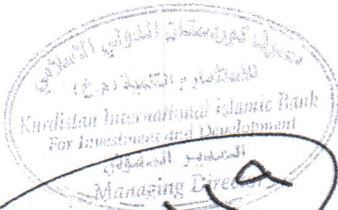 مصرف كوردستان الدولي الاسلامي
للاستثمار و التنمية (م.خ)
Kurdistan International Islamic Bank
For Investment and Development
المدير المفوض
Managing Director